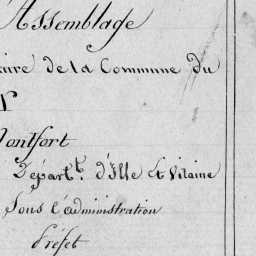 Assemblage
aire de la Commune du
Montfort
Départ.t d'Ille Et Vilaine
Sous l'administration
Préfet